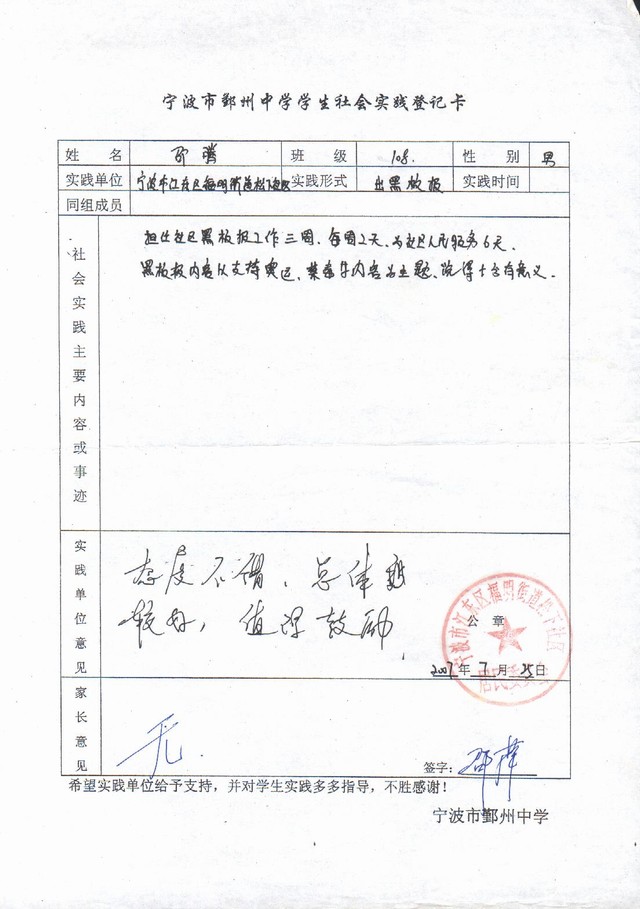 宁波市鄞州中学学生社会实践登记卡
姓 名 班 级 108. 性 别 男
实践单位 宁波市江东区福明街道松下社区 实践形式 出黑板报 实践时间
同组成员
社会实践主要内容或事迹
担任社区黑板报工作三周、每周2天、为社区人民服务6天、
黑板报内容以支持奥运、等内容为主题、觉得十分有意义.
实践单位意见
态度不错、总体
较好, 值得鼓励
公 章
宁波市江东区福明街道松下社区
居民委员会
2007年7月25日
家长意见
无.
签字: 邵
希望实践单位给予支持，并对学生实践多多指导，不胜感谢！
宁波市鄞州中学